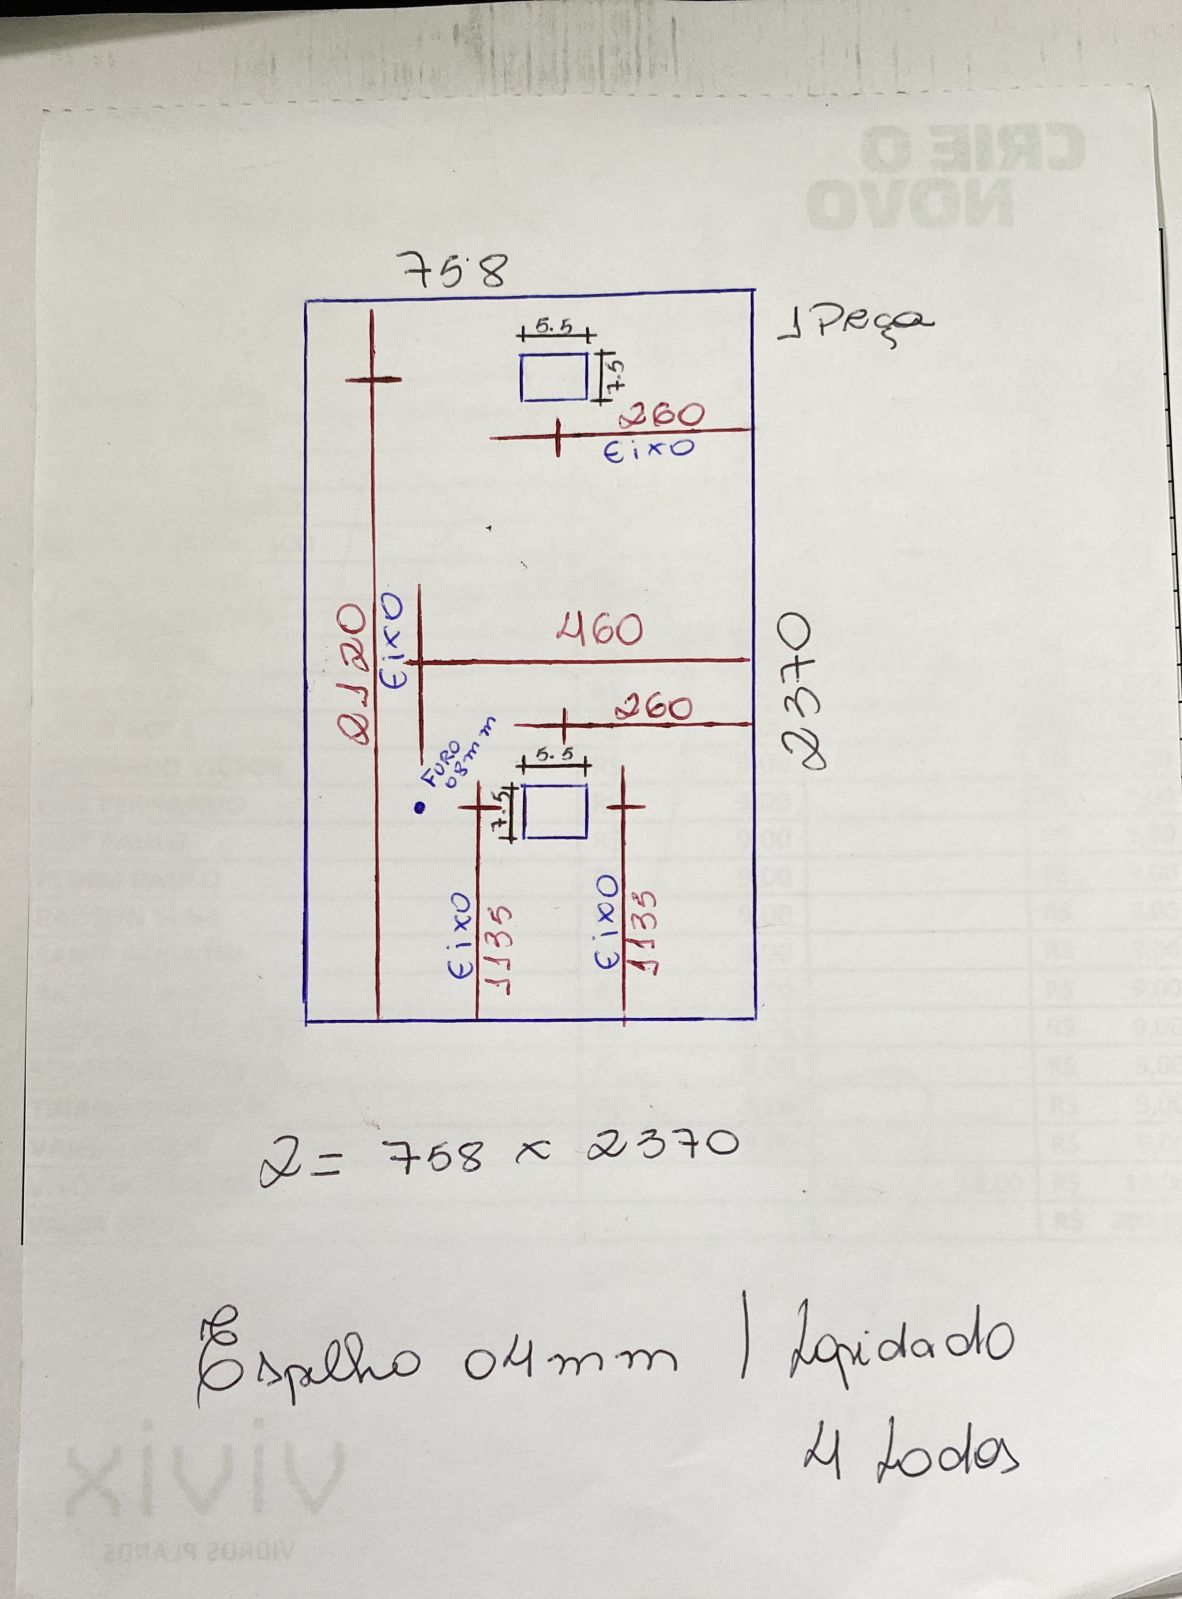 CRIE O
NOVO
758
1 Peça
5.5
7.5
260
Eixo
2120
Eixo
460
2370
260
FURO
08mm
5.5
7.5
Eixo
1135
Eixo
1135
2= 758 x 2370
Espelho 04mm | Lapidado
4 Lados
vivix
VIDROS PLANOS